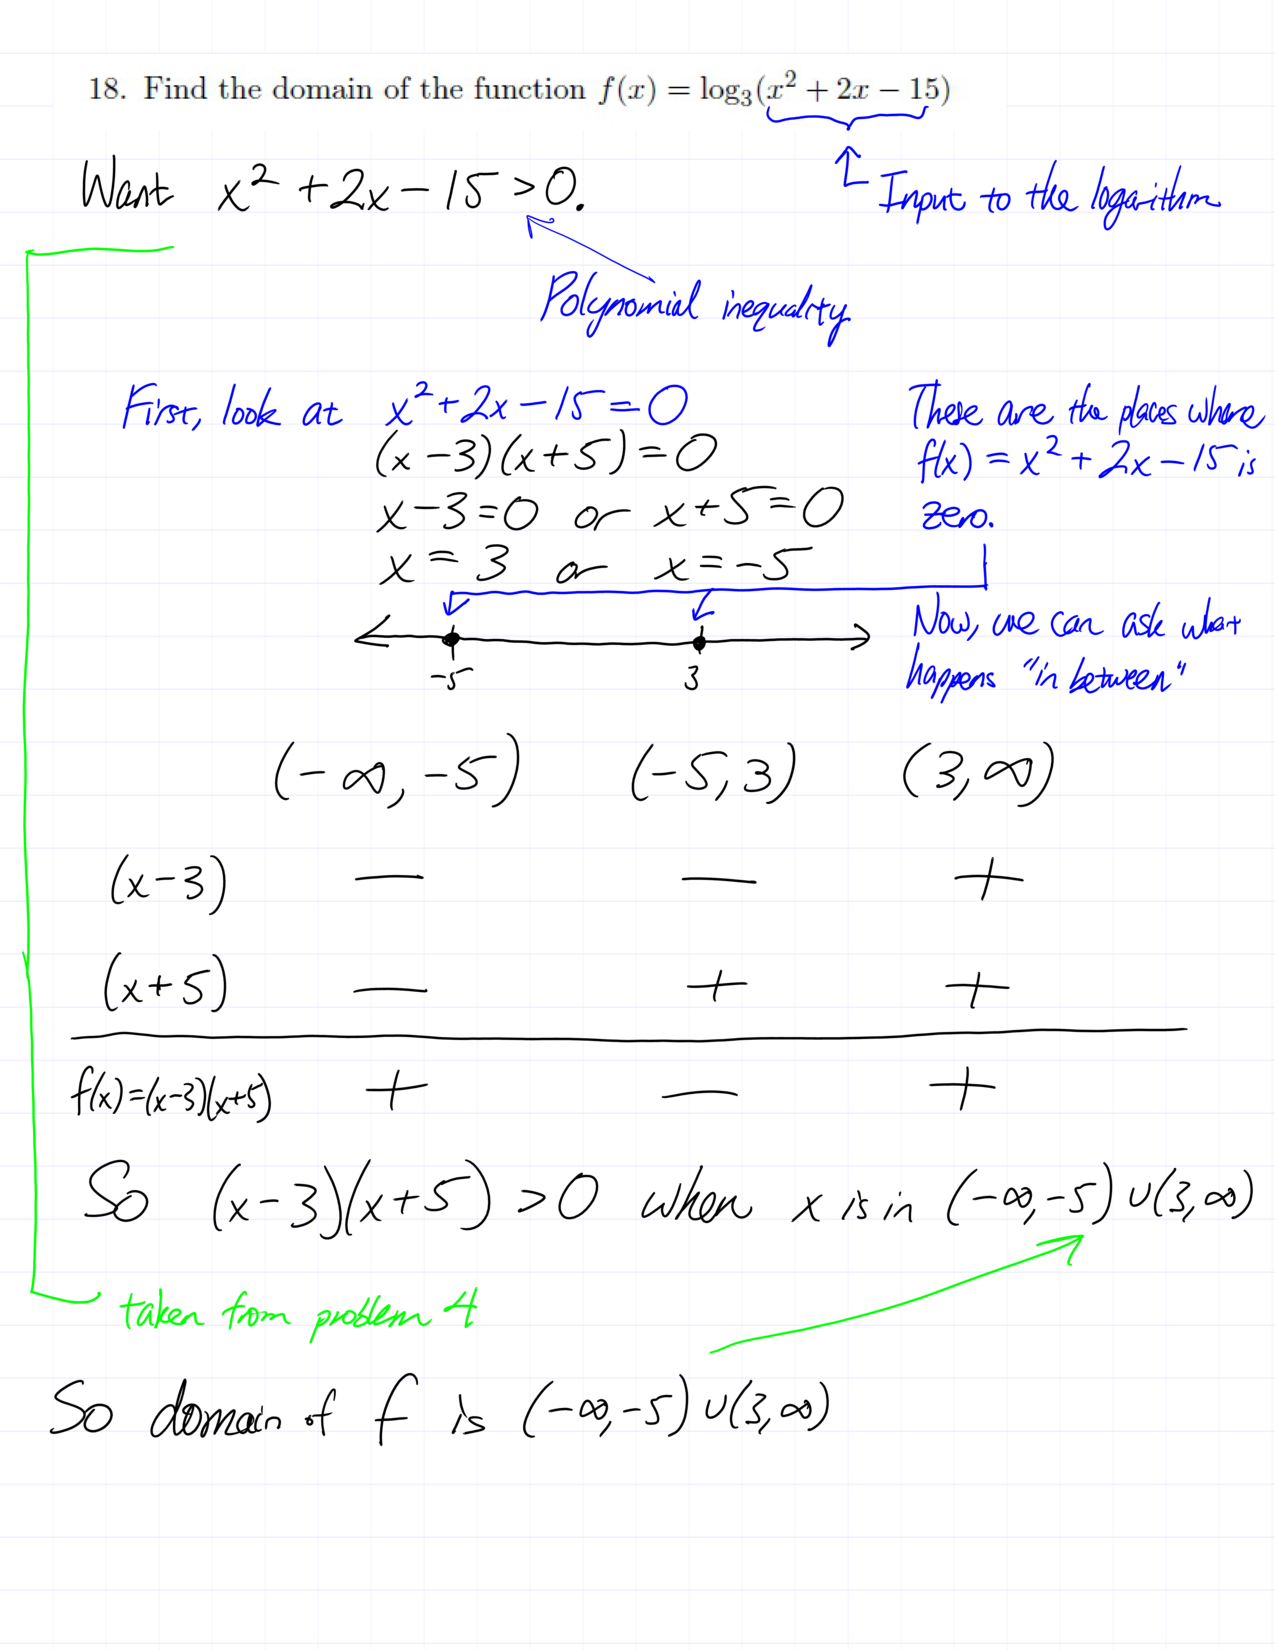 18. Find the domain of the function f(x) = log₃(x² + 2x − 15)
Want x² + 2x − 15 > 0.
Input to the logarithm
Polynomial inequality
First, look at x² + 2x − 15 = 0
(x − 3)(x + 5) = 0
x − 3 = 0 or x + 5 = 0
x = 3 or x = −5
These are the places where
f(x) = x² + 2x − 15 is
zero.
−5 3
Now, we can ask what
happens "in between"
(−∞, −5) (−5, 3) (3, ∞)
(x − 3) − − +
(x + 5) − + +
f(x) = (x−3)(x+5) + − +
So (x − 3)(x + 5) > 0 when x is in (−∞, −5) ∪ (3, ∞)
taken from problem 4
So domain of f is (−∞, −5) ∪ (3, ∞)